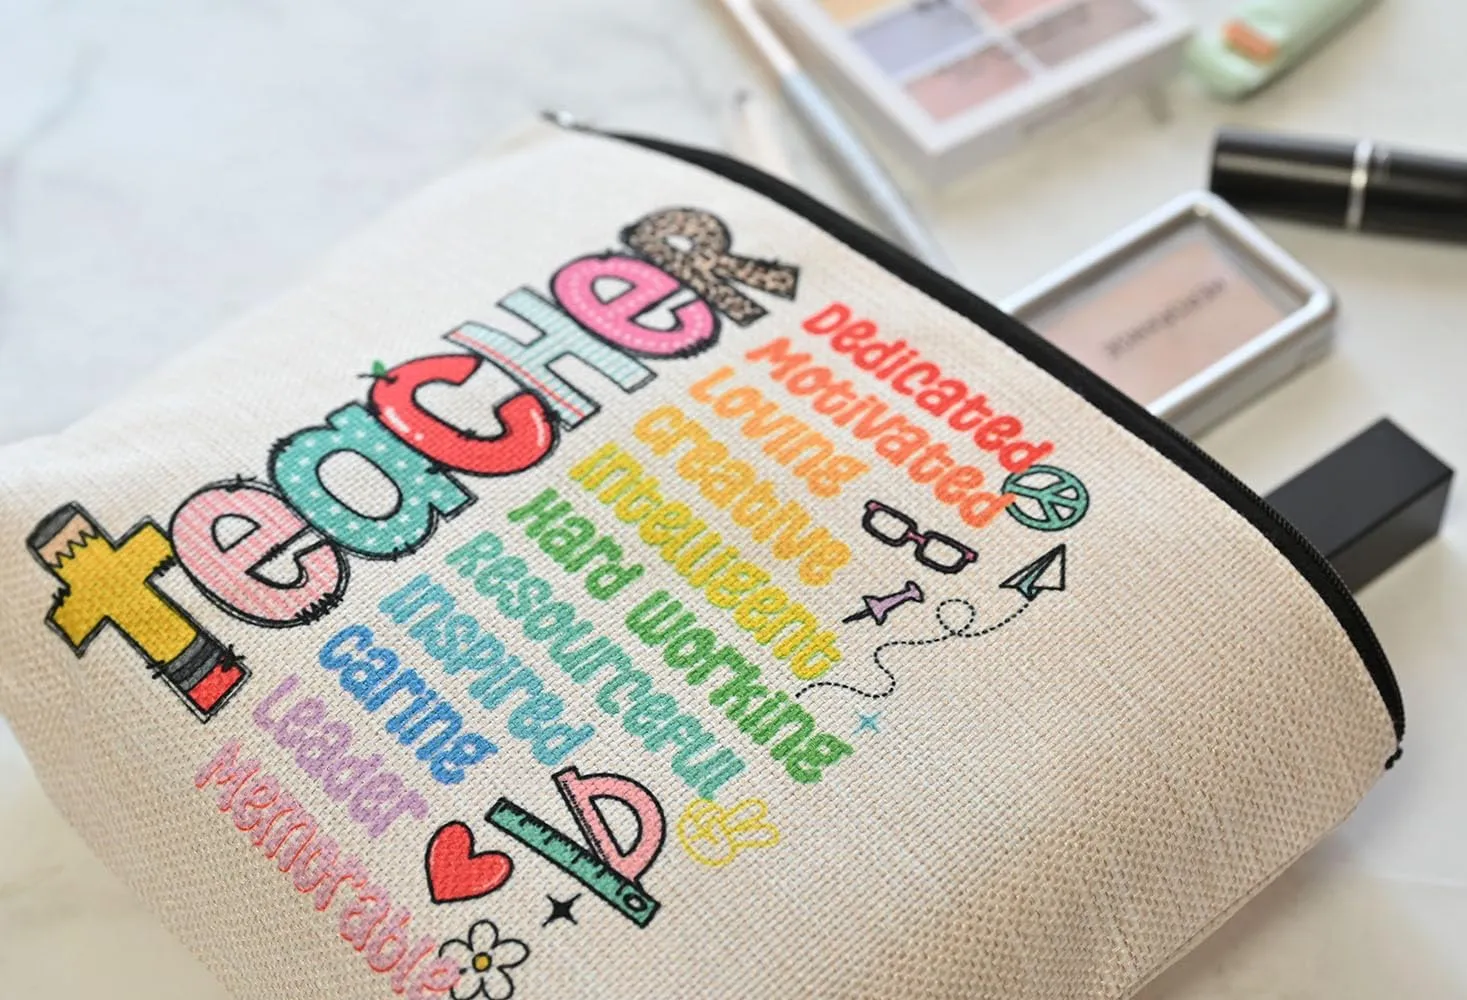 teacHeR
Dedicated
Motivated
Loving
creative
Intelligent
Hard working
Resourceful
Inspired
caring
Leader
Memorable